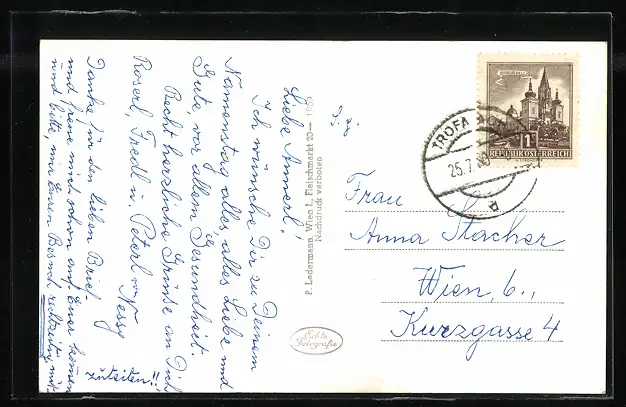 Liebe Annerl!
Ich wünsche Dir zu Deinem
Namenstag alles, alles Liebe und
Gute, vor allem Gesundheit.
Recht herzliche Grüße an Dich
Roserl, Fredl u. Peterl von Nessy
Danke für den lieben Brief
und freue mich schon auf Euer kommen
und bitte, mir Euren Besuch rechtzeitig mit-
zuteilen!!
P. Ledermann, Wien I., Fleischmarkt 20 — 1959
Nachdruck verboten
Echte
Fotografie
1 S
REPUBLIK ÖSTERREICH
TROFA
25.7.60
a
Frau
Anna Stacher
Wien, 6.,
Kurzgasse 4